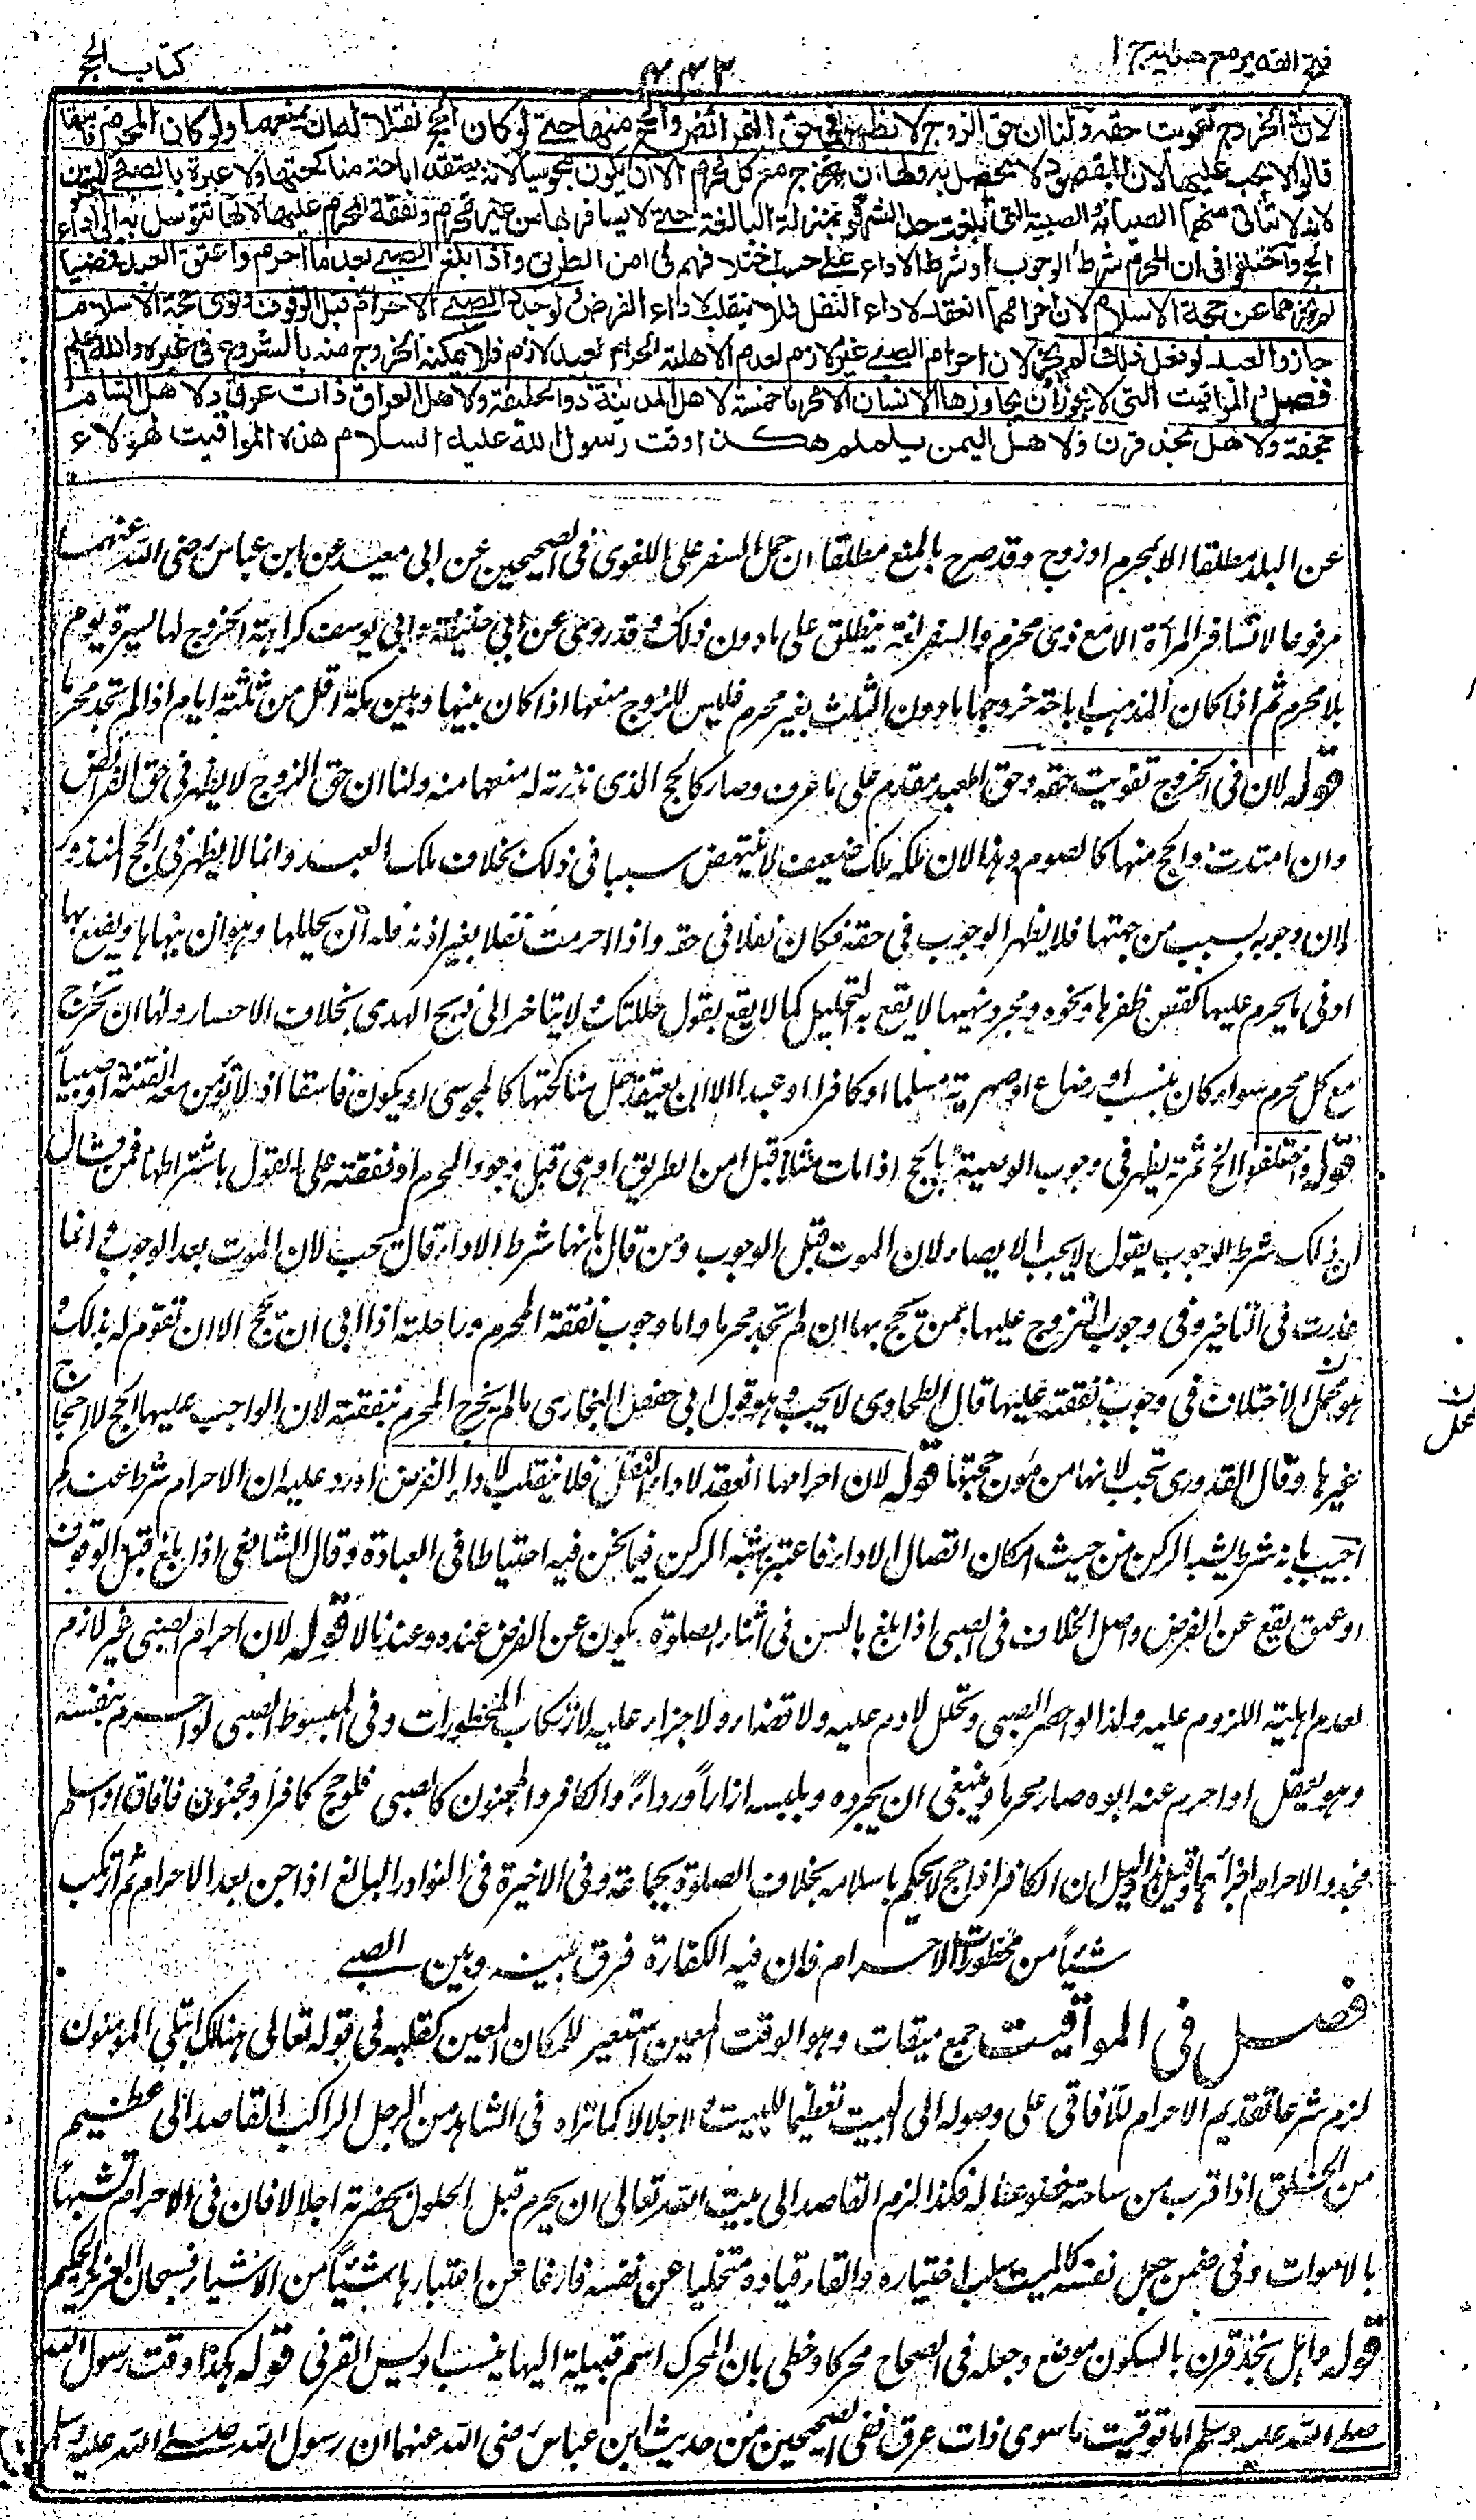 فتح القدير مع هدايه ج ١
٣٣٢
كتاب الحج
لان في الخروج تفويت حقه ولنا ان حق الزوج لا يظهر في حق الفرائض والحج منها حتى لو كان الحج نفلا له ان يمنعها ولو كان المحرم فاسقا
قالوا لا يجب عليها لان المقصود لا يحصل به ولها ان تخرج مع كل محرم الا ان يكون مجوسيا لانه يعتقد اباحة مناكحتها ولا عبرة بالصبي والمجنون
لانه لا تتاتى منهما الصيانة والصبية التي بلغت حد الشهوة بمنزلة البالغة حتى لا يسافر بها من غير محرم ونفقة المحرم عليها لانها تتوسل به الى اداء
الحج واختلفوا في ان المحرم شرط الوجوب او شرط الاداء على حسب اختلافهم في امن الطريق واذا بلغ الصبي بعد ما احرم واعتق العبد فمضيا
لم يجزهما عن حجة الاسلام لان احرامهما انعقد لاداء النفل فلا ينقلب لاداء الفرض ولو جدد الصبي الاحرام قبل الوقوف ونوى حجة الاسلام
جاز والعبد لو فعل ذلك لم يجز لان احرام الصبي غير لازم لعدم الاهلية اما احرام العبد لازم فلا يمكنه الخروج منه بالشروع في غيره والله اعلم
فصل المواقيت التي لا يجوز ان يجاوزها الانسان الا محرما خمسة لاهل المدينة ذو الحليفة ولاهل العراق ذات عرق ولاهل الشام
جحفة ولاهل نجد قرن ولاهل اليمن يلملم هكذا وقت رسول الله عليه السلام هذه المواقيت لهؤلاء
عن البلد مطلقا الا بمحرم او زوج وقد صرح بالمنع مطلقا ان حمل السفر على اللغوي في الصحيحين عن ابي معبد عن ابن عباس رضي الله عنهما
مرفوعا لا تسافر المرأة الا مع ذي محرم والسفر لغة ينطلق على ما دون ذلك وقد روي عن ابي حنيفة وابي يوسف كراهة الخروج لها مسيرة يوم
بلا محرم ثم اذا كان المذهب اباحة خروجها ما دون الثلث بغير محرم فليس للزوج منعها اذا كان بينها وبين مكة اقل من ثلثة ايام اذا لم تجد محرما
قوله لان في الخروج تفويت حقه وحق العبد مقدم على ما عرف وصار كالحج الذي نذرته له منعها منه ولنا ان حق الزوج لا يظهر في حق الفرائض
وان امتدت والحج منها كالصوم وهذا لان ملكه ملك ضعيف لا ينتهض سببا في ذلك بخلاف ملك العبد وانما لا يظهر في الحج المنذور
لان وجوبه بسبب من جهتها فلا يظهر الوجوب في حقه فكان نفلا في حقه واذا احرمت نفلا بغير اذنه فله ان يحللها وهو ان ينهاها ويصنع بها
ادنى ما يحرم عليها كقص ظفرها ونحوه ومجرد نهيها لا يقع به التحليل كما لا يقع بقوله حللتك ولا يتاخر الى ذبح الهدي بخلاف الاحصار ولها ان تخرج
مع كل محرم سواء كان بنسب او رضاع او صهرية مسلما او كافرا او عبدا الا ان يعتقد حل مناكحتها كالمجوسي او يكون فاسقا اذ لا تؤمن معه الفتنة او صبيا
قوله واختلفوا الخ ثمرته يظهر في وجوب الوصية بالحج اذا مات مثلا قبل امن الطريق او هي قبل وجود المحرم او نفقته على القول باشتراطها فمن قال
ان ذلك شرط الوجوب يقول لا يجب الايصاء لان الموت قبل الوجوب ومن قال بانها شرط الاداء قال يجب لان الموت بعد الوجوب وانما
عذرت في التاخير وفي وجوب التزوج عليها بمن تحج بها ان لم تجد محرما واما وجوب نفقة المحرم وراحلته اذا ابى ان يحج الا ان تقوم له بذلك
هو محل الاختلاف في وجوب نفقته عليها قال الطحاوي لا يجب وهو قول ابي حفص البخاري ما لم يخرج المحرم بنفقته لان الواجب عليها الحج لا احجاج
غيرها وقال القدوري تجب لانها من مؤن حجتها قوله لان احرامهما انعقد لاداء النفل فلا ينقلب لاداء الفرض اورد عليه ان الاحرام شرط عندكم
اجيب بانه شرط يشبه الركن من حيث امكان اتصال الاداء فاعتبرنا شبه الركن فيما نحن فيه احتياطا في العبادة وقال الشافعي اذا بلغ قبل الوقوف
او عتق يقع عن الفرض واصل الخلاف في الصبي اذا بلغ بالسن في أثناء الصلوة يكون عن الفرض عنده وعندنا لا قوله لان احرام الصبي غير لازم
لعدم اهلية اللزوم عليه ولذا لو احصر الصبي وتحلل لا دم عليه ولا قضاء ولا جزاء عليه لارتكاب المحظورات وفي المبسوط الصبي لو احرم بنفسه
وهو يعقل او احرم عنه ابوه صار محرما وينبغي ان يجرده ويلبسه ازاراً ورداءً والكافر والمجنون كالصبي فلو حج كافر او مجنون فافاق او اسلم
فجدد الاحرام اجزأهما وقيل هذا دليل ان الكافر اذا حج لا يحكم باسلامه بخلاف الصلوة بجماعة وفي الاخيرة في النوادر البالغ اذا جن بعد الاحرام ثم ارتكب
شيأ من محظورات الاحرام فان فيه الكفارة فرق بينه وبين الصبي
فصل في المواقيت جمع ميقات وهو الوقت المعين استعير للمكان المعين كقلبه في قوله تعالى هنالك ابتلي المؤمنون
لزم شرعا تقديم الاحرام للآفاقي على وصوله الى البيت تعظيما للبيت واجلالا كما تراه في الشاهد من الرجل الراكب القاصد الى عظيم
من الخلق اذا قرب من ساحته خضوعا له فكذا لزم القاصد الى بيت الله تعالى ان يحرم قبل الحلول بحضرته اجلالا فان في الاحرام تشبها
بالاموات وفي ضمن جعل نفسه كالميت سلب اختياره والقاء قياده متخليا عن نفسه فارغا عن اعتبارها شيأ من الاشياء فسبحان العزيز الحكيم
قوله واهل نجد قرن بالسكون موضع وجعله في الصحاح محركا وخطي بان المحرك اسم قبيلة اليها ينسب اويس القرني قوله هكذا وقت رسول الله
صلى الله عليه وسلم اما توقيت ما سوى ذات عرق ففي الصحيحين من حديث ابن عباس رضي الله عنهما ان رسول الله صلى الله عليه وسلم